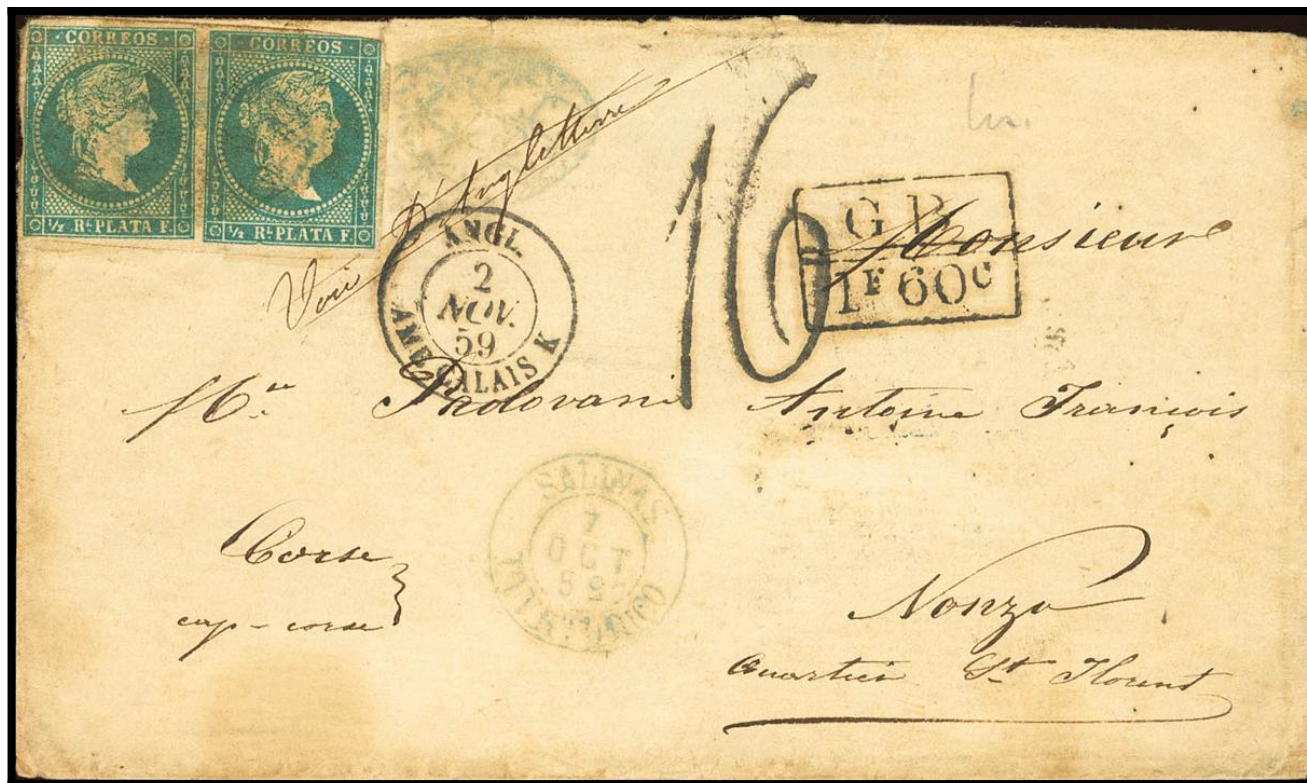 CORREOS
½ Rl PLATA F.
CORREOS
½ Rl PLATA F.
Voie d'Angleterre
16
ANGL.
2
NOV.
59
AMB. CALAIS K
G B
1F 60C
Monsieur
Mr Padovani Antoine François
SALINAS
7
OCT
59
PUERTO-RICO
Corse
cap-corse
Nonza
Quartier St Florent